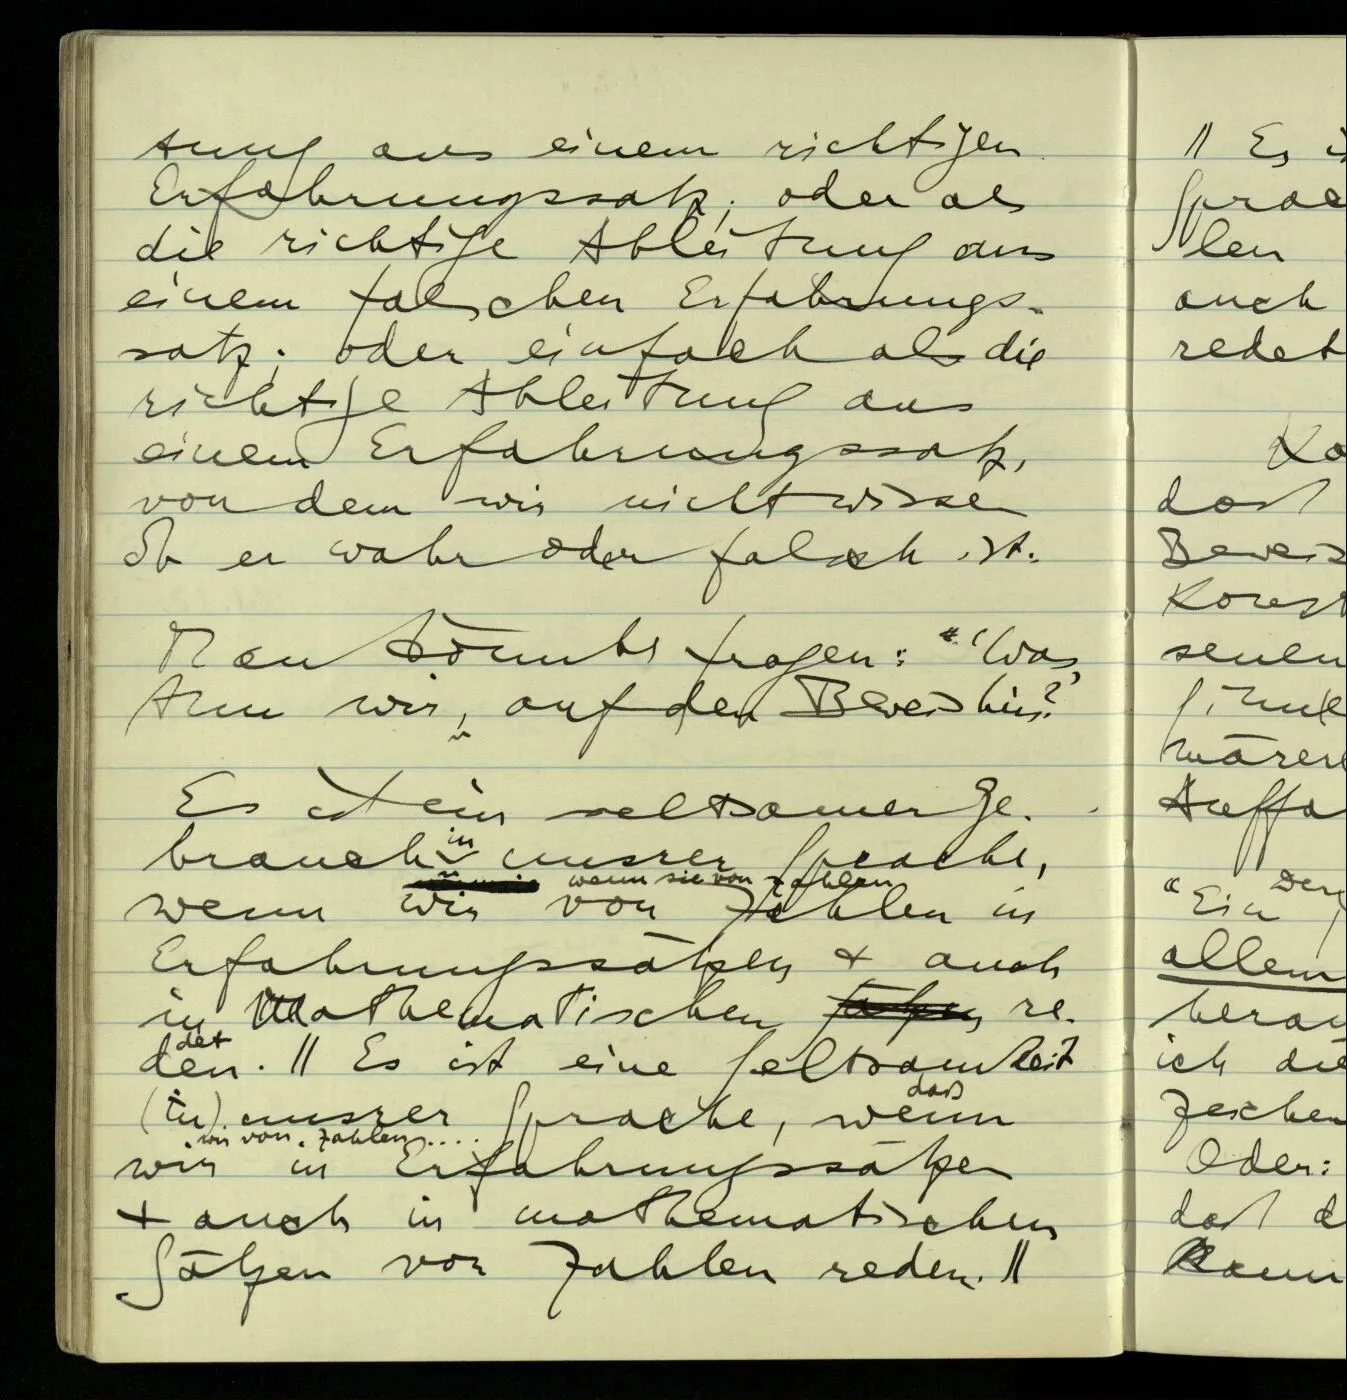 tung aus einem richtigen
Erfahrungssatz; oder als
die richtige Ableitung aus
einem falschen Erfahrungs-
satz; oder einfach als die
richtige Ableitung aus
einem Erfahrungssatz,
von dem wir nicht wissen
ob er wahr oder falsch ist.
Man könnte fragen: "'Was
tun wir, auf den Beweis hin?'
Es ist ein seltsamer Ge-
brauch in unsrer Sprache,
wenn sie von Zahlen
wenn wir von Zahlen in
Erfahrungssätzen + auch
in Mathematischen Sätzen re-
det
den. || Es ist eine Seltsamkeit
daß
(in) unsrer Sprache, wenn
wir von Zahlen ....
wir in Erfahrungssätzen
+ auch in mathematischen
Sätzen von Zahlen reden. ||
|| Es
Sprac
len
auch
redet
Ko
daß
Beweis
Konst
senen
wären
Auffa
"Ein
allem
herau
ich die
Zeichen
Oder:
daß d
kann